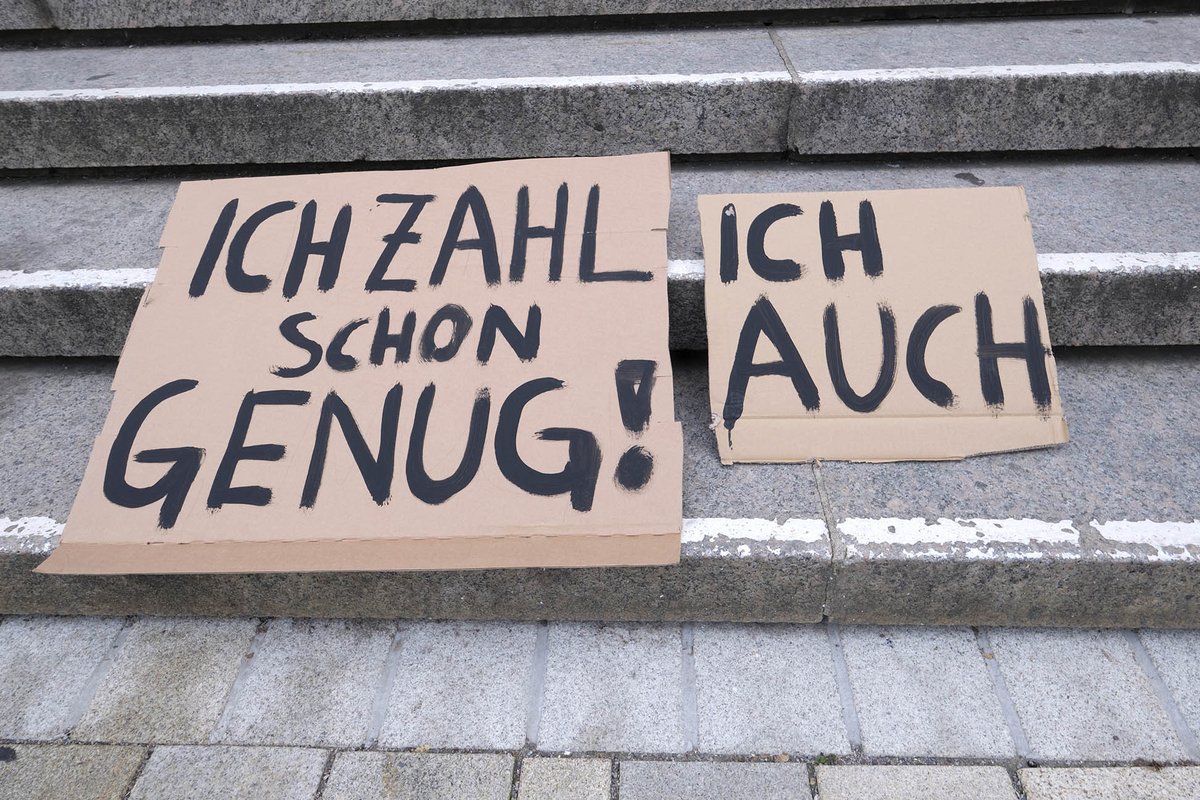 ICH ZAHL
SCHON
GENUG!
ICH
AUCH